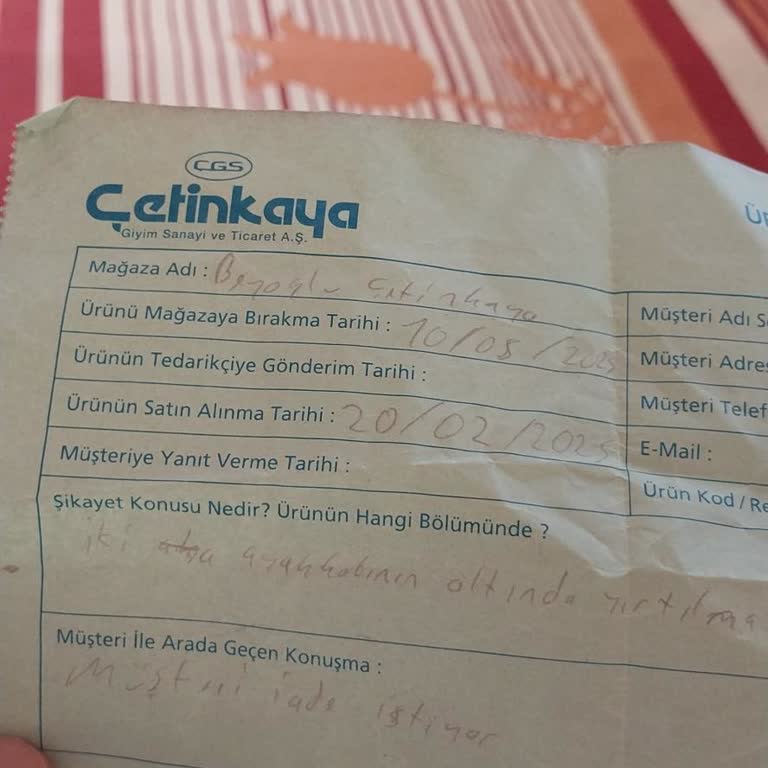 ÇGS
Çetinkaya
Giyim Sanayi ve Ticaret A.Ş.
Mağaza Adı : Beyoğlu Çetinkaya
Ürünü Mağazaya Bırakma Tarihi : 10/05/2025
Ürünün Tedarikçiye Gönderim Tarihi :
Ürünün Satın Alınma Tarihi : 20/02/2025
Müşteriye Yanıt Verme Tarihi :
Müşteri Adı S
Müşteri Adres
Müşteri Telef
E-Mail :
Ürün Kod / Re
Şikayet Konusu Nedir? Ürünün Hangi Bölümünde ?
iki ayakkabının altında yırtılma
Müşteri İle Arada Geçen Konuşma :
Müşteri iade istiyor